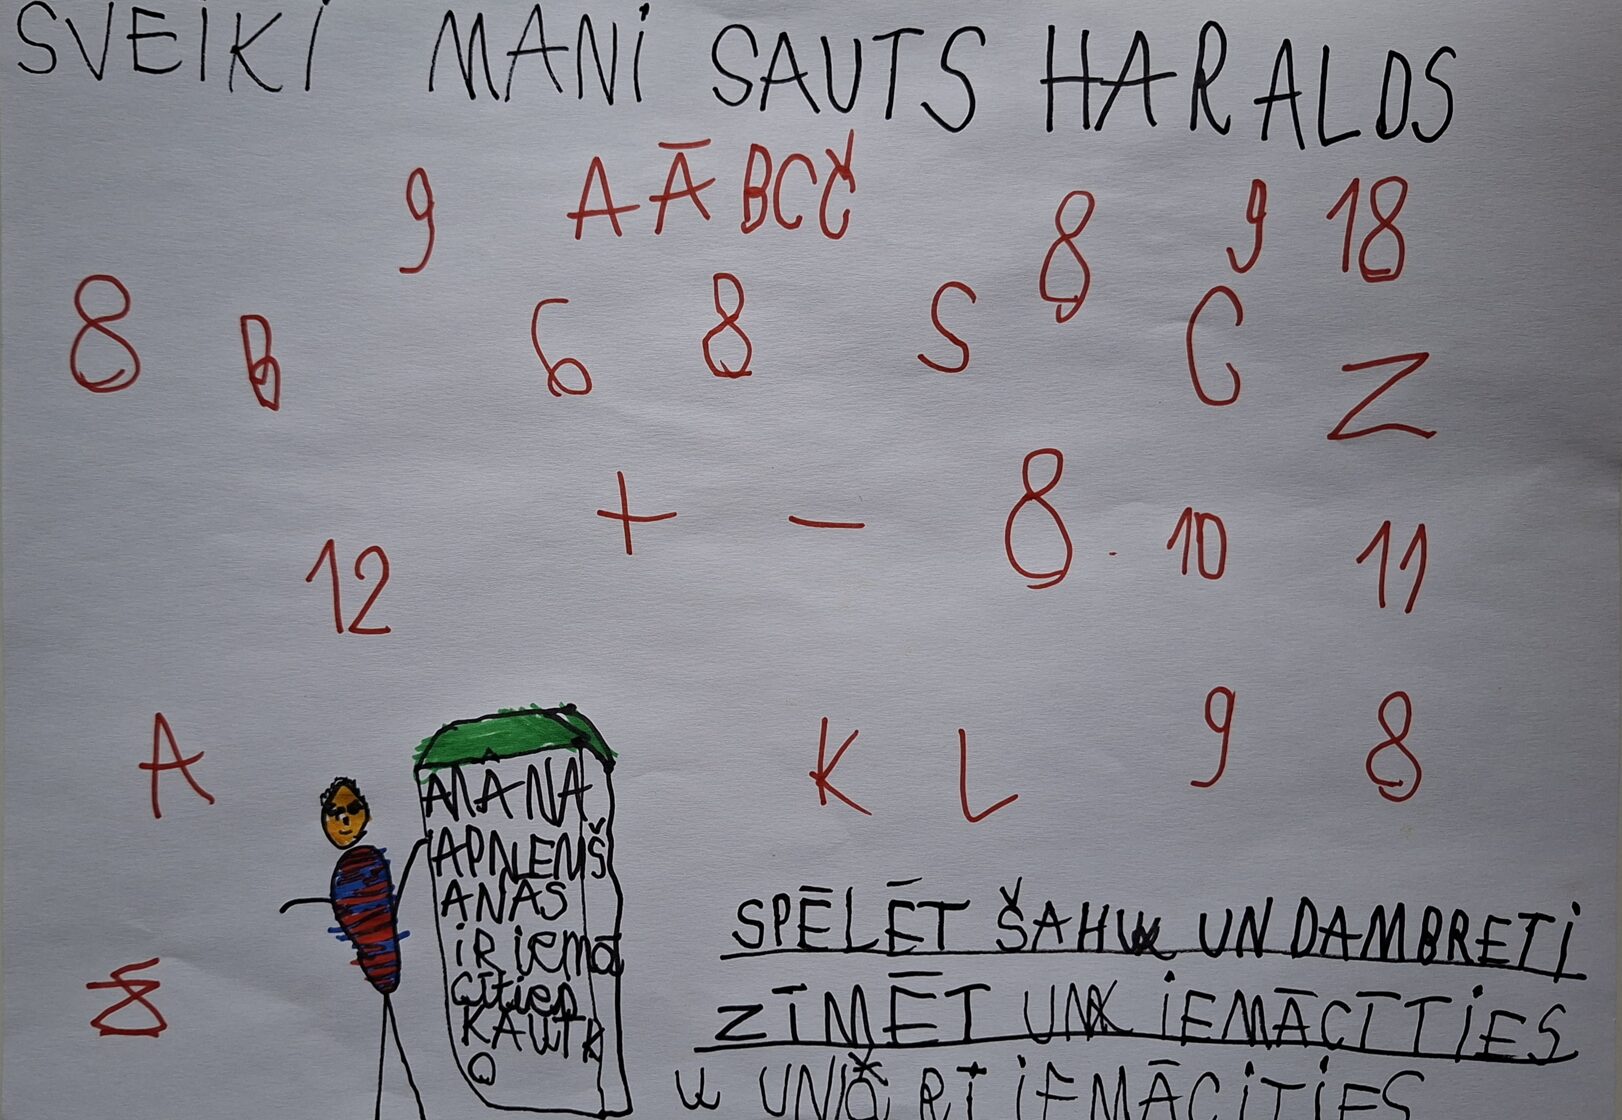 SVEIKI MANI SAUTS HARALDS
9 A Ā B C Č 8 9 18
8 B 6 8 S C Z
+ - 8 10 11
12
A K L 9 8
MANA
APŅEMŠ
ANĀS
iR iemā
cīties
KAUT K
O
SPĒLĒT ŠAHU UN DAMBRETI
ZĪMĒT UN iEMĀCĪTTiES
iEMĀCiTiES